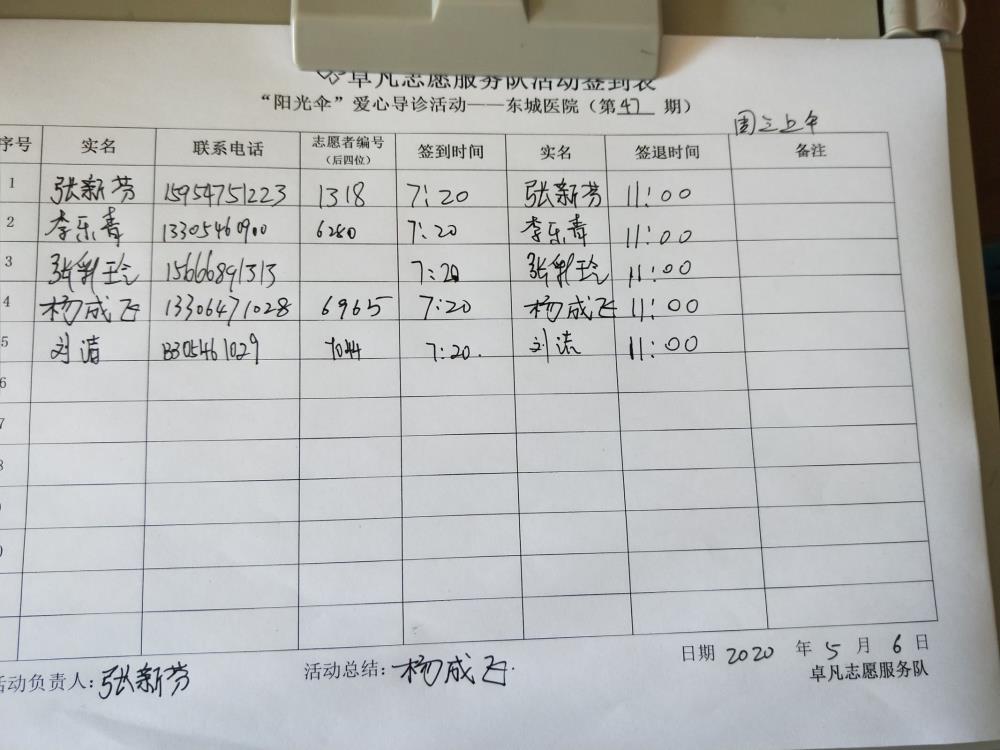 卓凡志愿服务队活动签到表
“阳光伞”爱心导诊活动——东城医院（第47期）
周三上午
序号 实名 联系电话 志愿者编号（后四位） 签到时间 实名 签退时间 备注
1 张新芳 15954751223 1318 7:20 张新芳 11:00
2 李乐青 13305460900 6280 7:20 李乐青 11:00
3 15666891313 7:20 11:00
4 杨成飞 13306471028 6965 7:20 杨成飞 11:00
5 刘清 13305461029 7044 7:20. 刘清 11:00
6
7
8
日期 2020 年 5 月 6 日
活动负责人:张新芳 活动总结:杨成飞.
卓凡志愿服务队